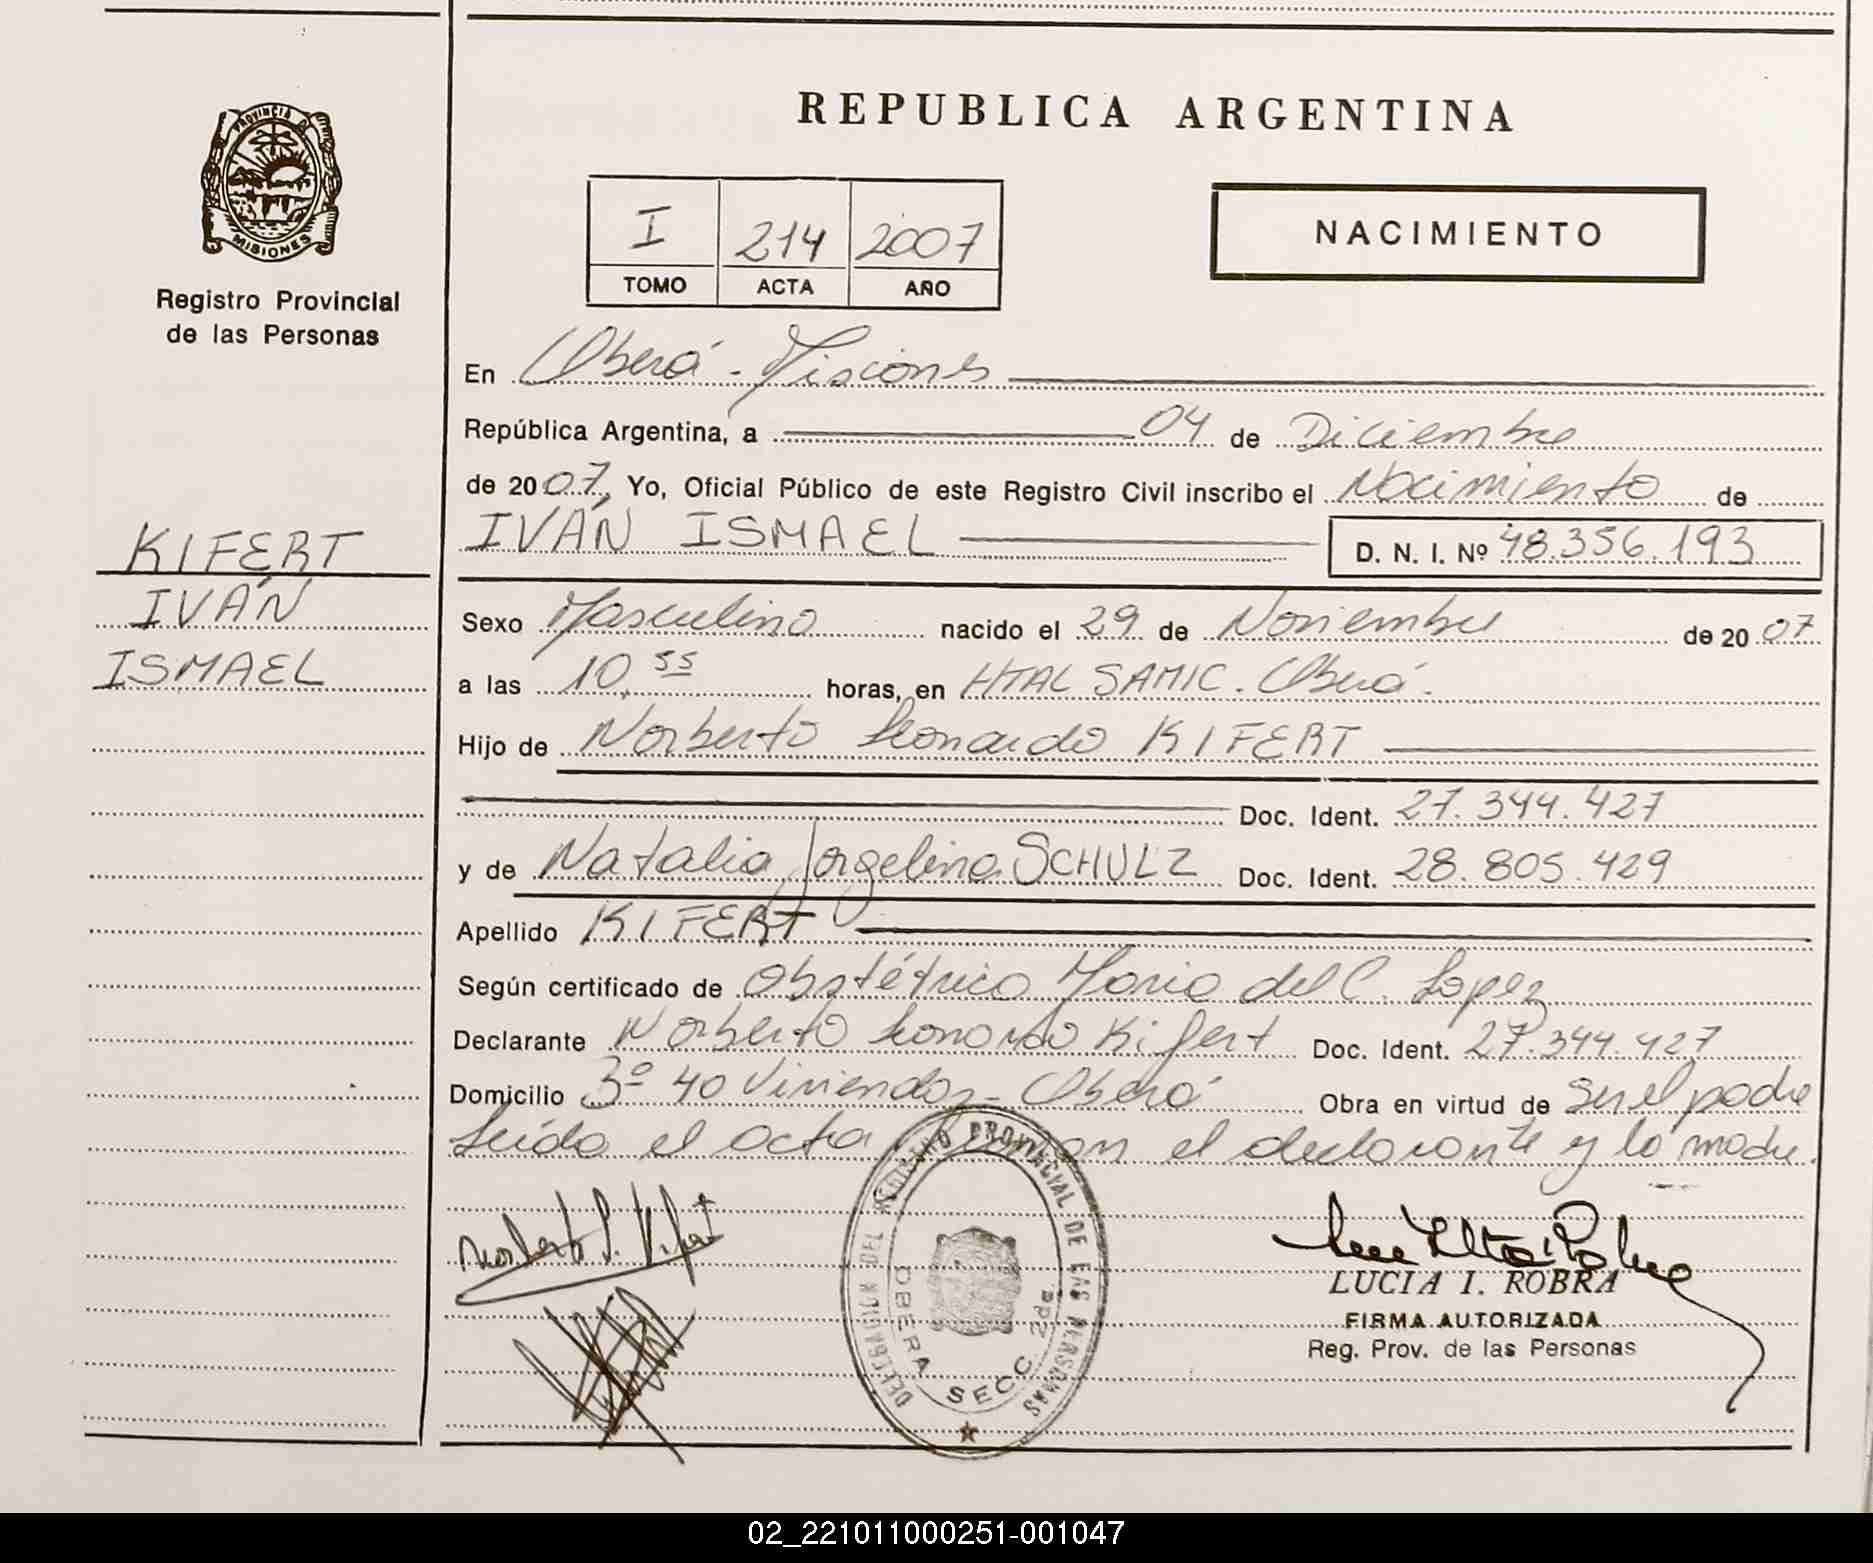 REPUBLICA ARGENTINA
PROVINCIA D MISIONES
Registro Provincial
de las Personas
I 214 2007
TOMO ACTA AÑO
NACIMIENTO
En Oberá - Misiones
República Argentina, a 04 de Diciembre
de 2007, Yo, Oficial Público de este Registro Civil inscribo el Nacimiento de
IVÁN ISMAEL D. N. I. Nº 48.356.193
KIFERT
IVÁN
ISMAEL
Sexo Masculino nacido el 29 de Noviembre de 2007
a las 10,55 horas, en HTAL SAMIC. Oberá.
Hijo de Norberto Leonardo KIFERT
Doc. Ident. 27.344.427
y de Natalia Jorgelina SCHULZ Doc. Ident. 28.805.429
Apellido KIFERT
Según certificado de Obstétrica Maria del C. Lopez
Declarante Norberto Leonardo Kifert Doc. Ident. 27.344.427
Domicilio Bº 40 Viviendas - Oberá Obra en virtud de Ser el padre
Leída el acta firman el declarante y la madre.
DELEGACION DEL REGISTRO PROVINCIAL DE LAS PERSONAS
OBERA SECC. 2da
Norberto L. Kifert
LUCIA I. ROBRA
FIRMA AUTORIZADA
Reg. Prov. de las Personas
02_221011000251-001047